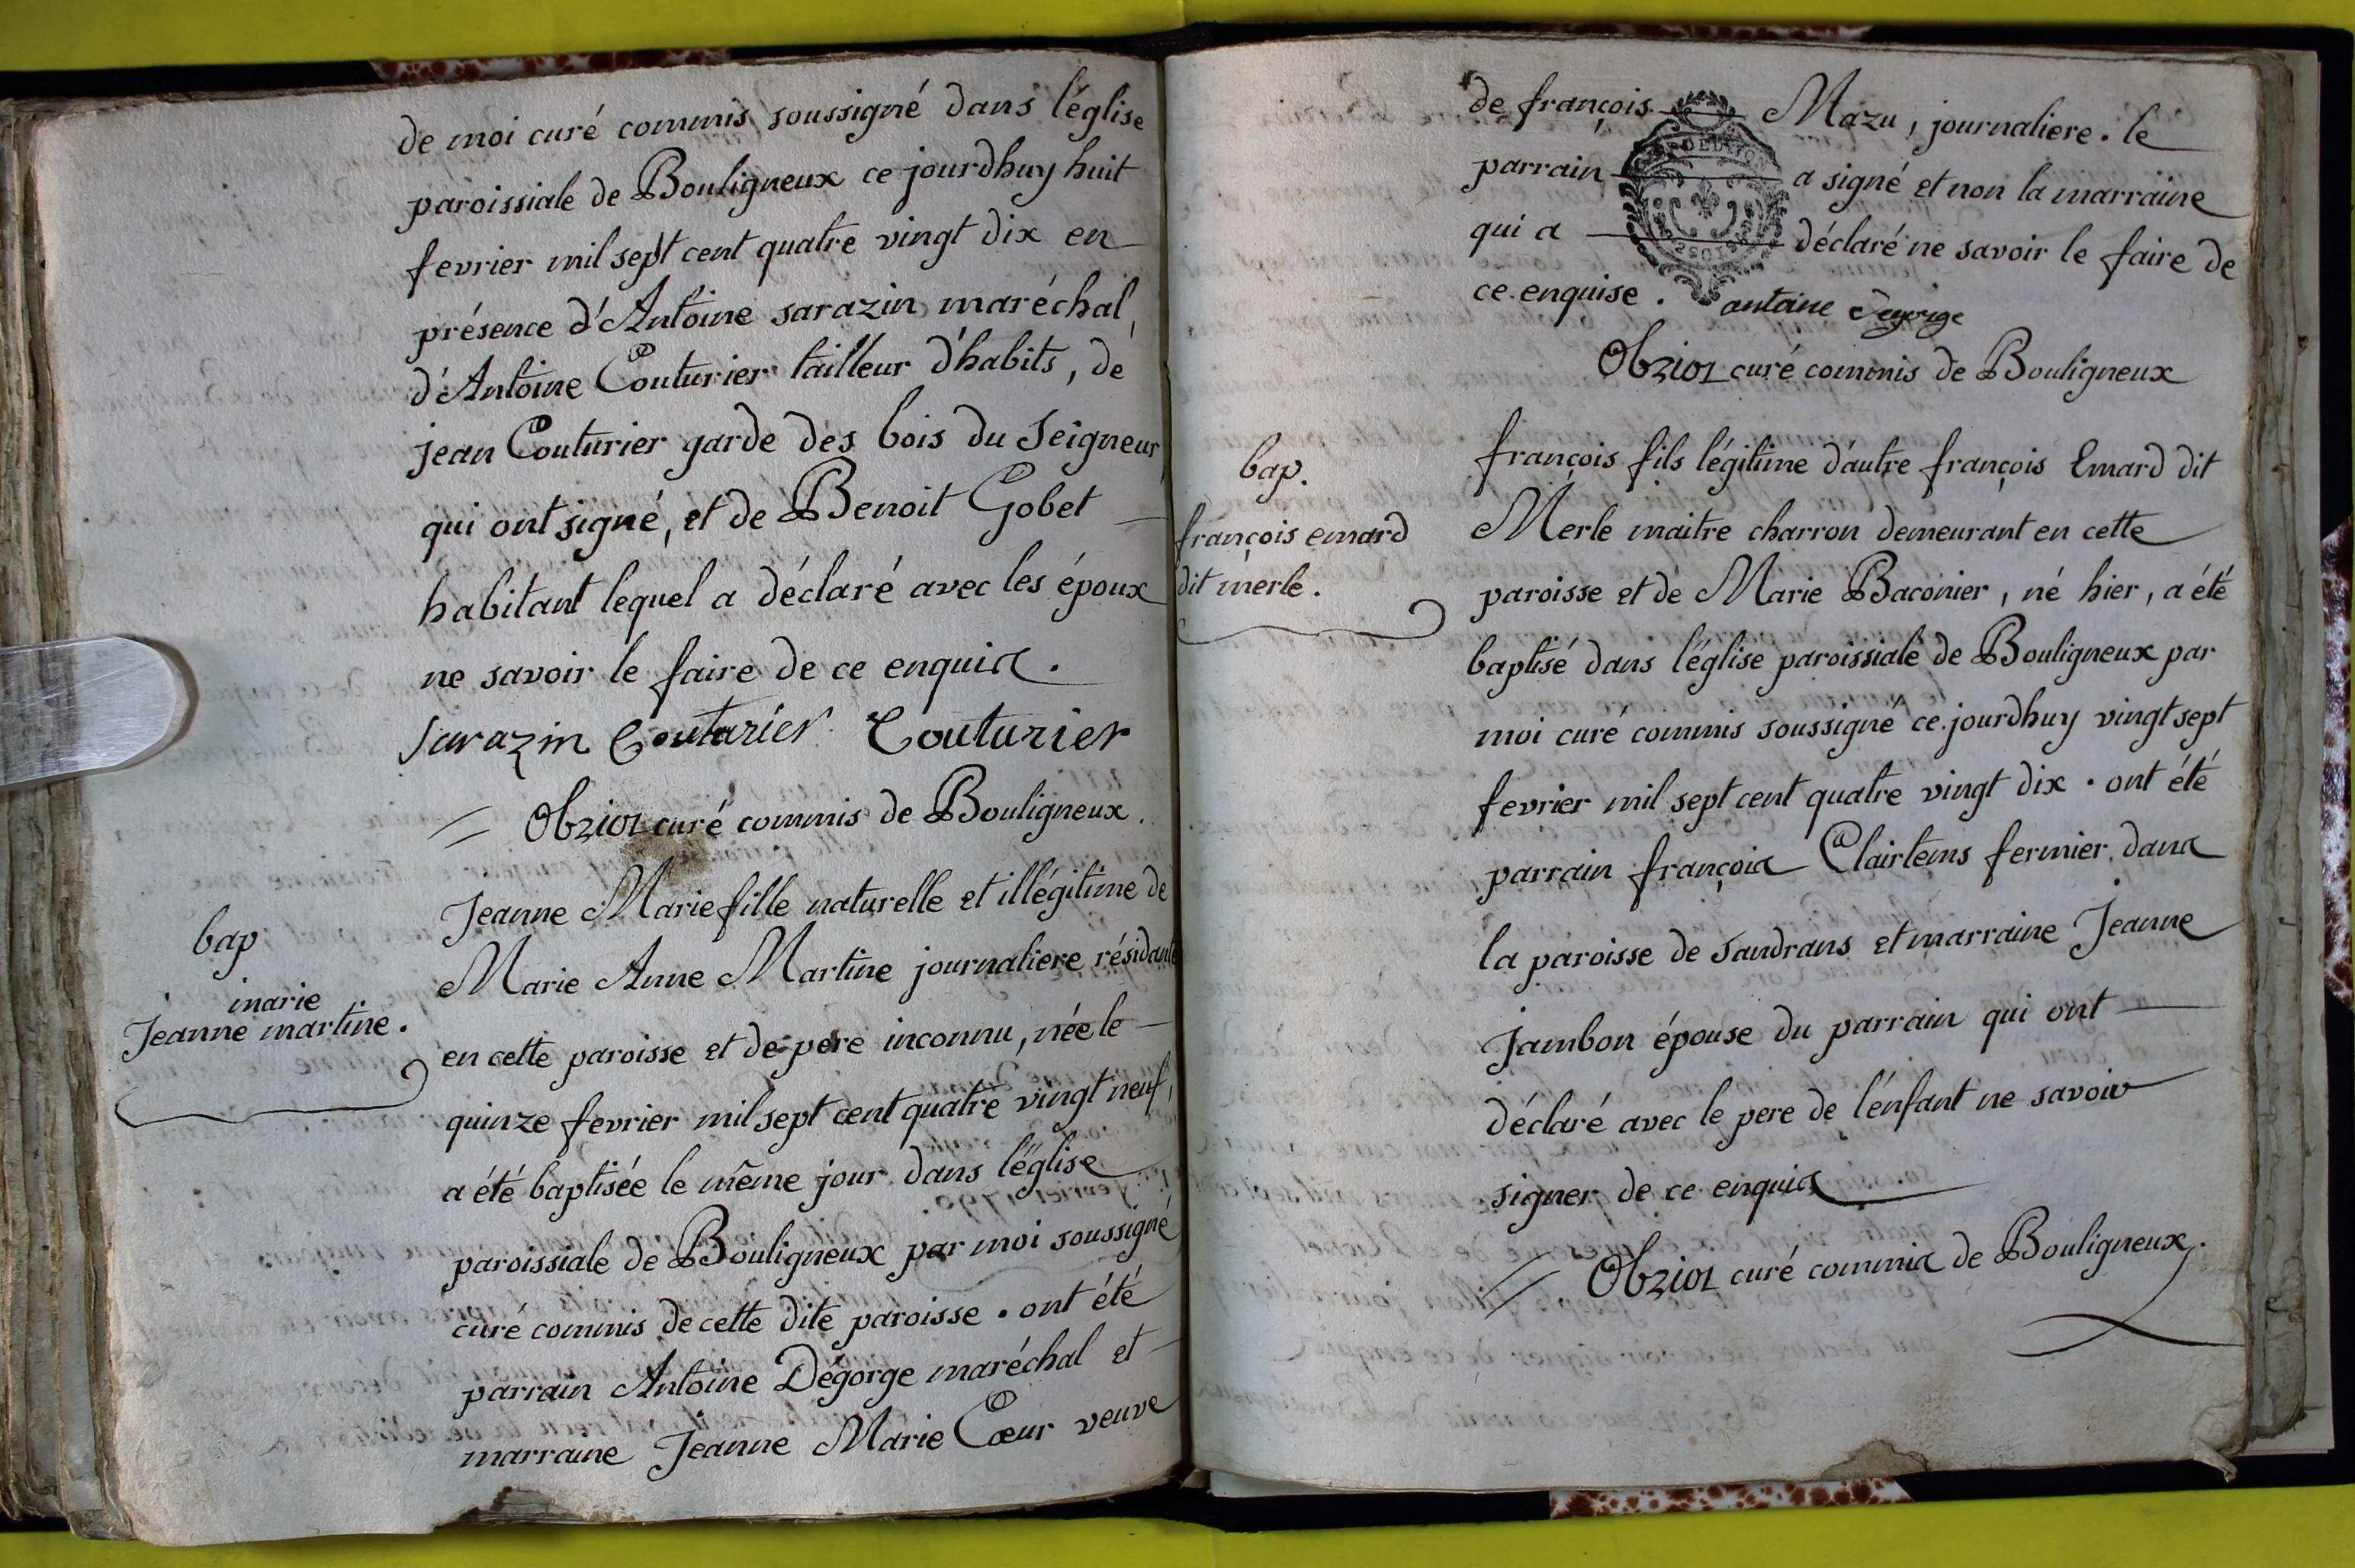 de moi curé commis soussigné dans l'église
paroissiale de Bouligneux ce jourdhuy huit
fevrier mil sept cent quatre vingt dix en
présence d'Antoine sarazin maréchal,
d'Antoine Couturier tailleur d'habits, de
jean Couturier garde des bois du Seigneur
qui ont signé, et de Benoit Gobet
habitant lequel a déclaré avec les époux
ne savoir le faire de ce enquis.
sarazin Couturier Couturier
curé commis de Bouligneux.
bap
marie
Jeanne martine.
Jeanne Marie fille naturelle et illégitime de
Marie Anne Martine journaliere résidante
en cette paroisse et de pere inconnu, née le
quinze fevrier mil sept cent quatre vingt neuf,
a été baptisée le même jour dans l'église
paroissiale de Bouligneux par moi soussigné
curé commis de cette dite paroisse. ont été
parrain Antoine Dégorge maréchal et
marraine Jeanne Marie Cœur veuve
de françois Mazu, journaliere. le
parrain a signé et non la marraine
qui a déclaré ne savoir le faire de
ce enquise. antoine Degorge
curé commis de Bouligneux
bap.
françois emard
dit merle.
françois fils légitime d'autre françois Emard dit
Merle maitre charron demeurant en cette
paroisse et de Marie Baconier, né hier, a été
baptisé dans l'église paroissiale de Bouligneux par
moi curé commis soussigné ce jourdhuy vingt sept
fevrier mil sept cent quatre vingt dix. ont été
parrain françois Clairtems fermier dans
la paroisse de Sandrans et marraine Jeanne
Jambon épouse du parrain qui ont
déclaré avec le pere de l'enfant ne savoir
signer de ce enquis
curé commis de Bouligneux.